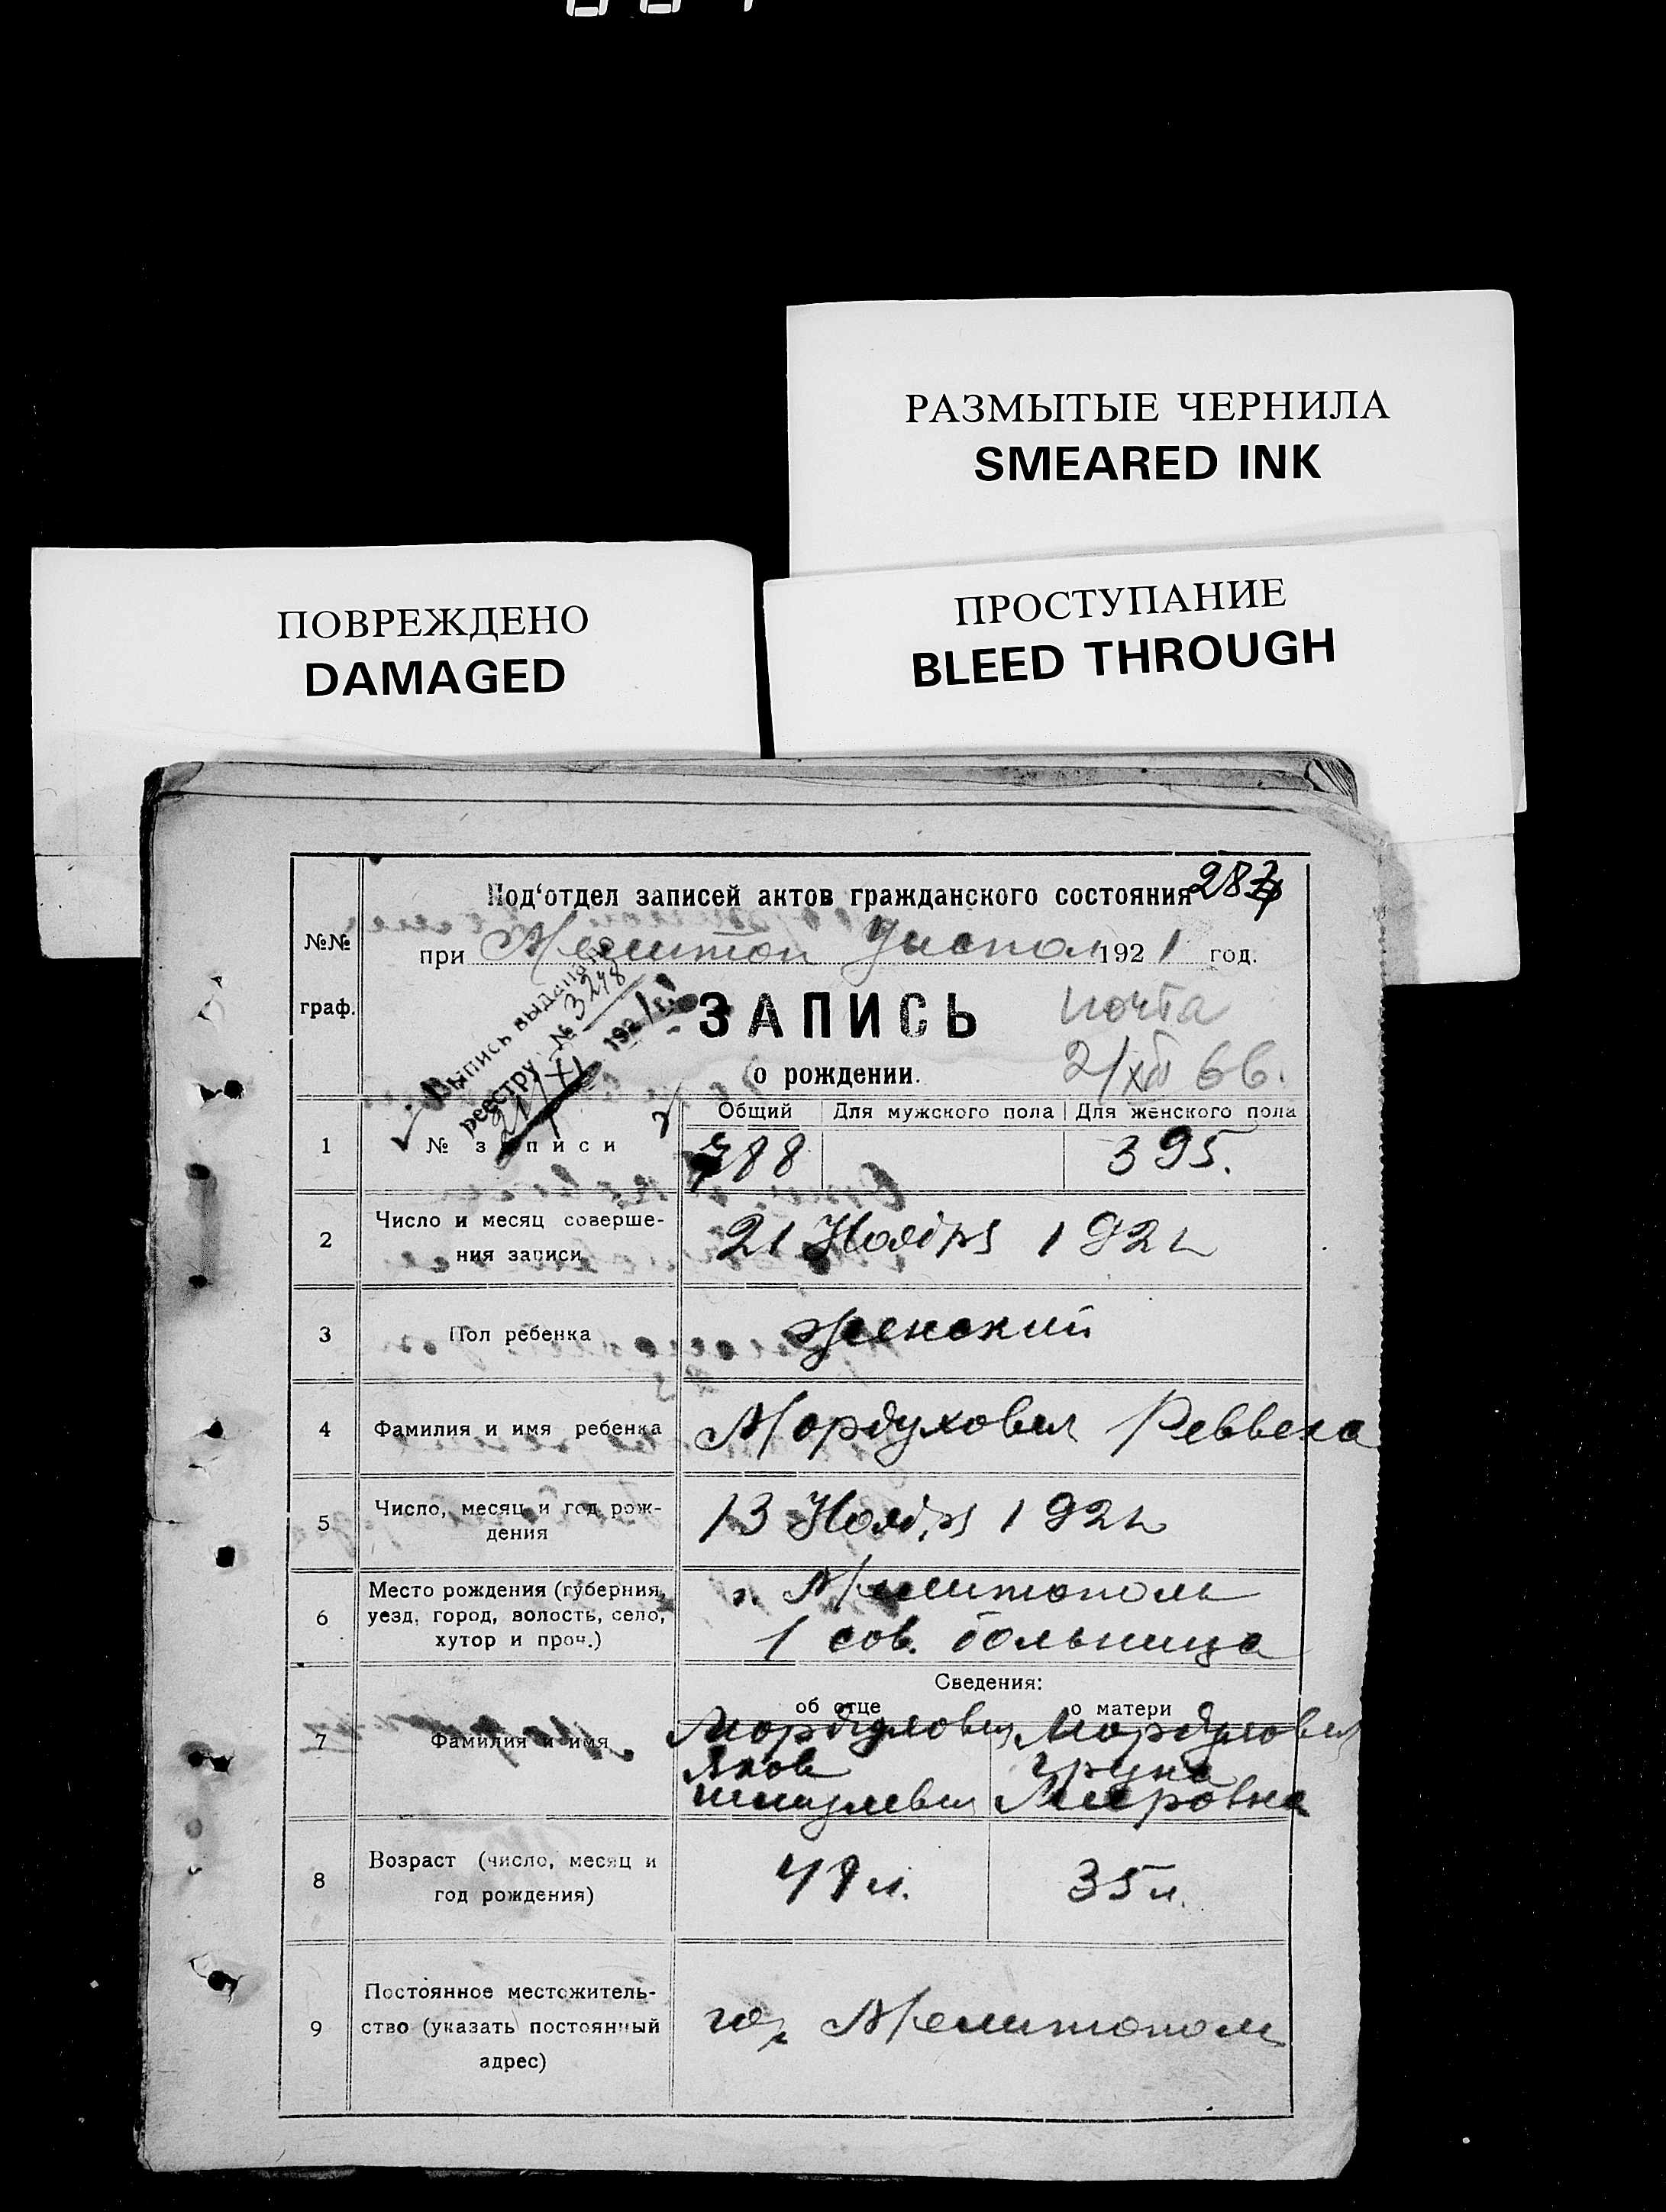 РАЗМЫТЫЕ ЧЕРНИЛА
SMEARED INK
ПОВРЕЖДЕНО
DAMAGED
ПРОСТУПАНИЕ
BLEED THROUGH
Под‘отдел записей актов гражданского состояния
№№ граф.
при Мелитоп 1921 год.
Выпись выдана
реестру № 3248
21/XI 192
ЗАПИСЬ
о рождении.
почта
2/XII 66.
Общий Для мужского пола Для женского пола
1 № записи 788 395.
2 Число и месяц соверше-
ния записи
21 Ноября 1921
3 Пол ребенка женский
4 Фамилия и имя ребенка Мордухович Реввека
5 Число, месяц и год рож-
дения
13 Ноября 1921
6 Место рождения (губерния,
уезд, город, волость, село,
хутор и проч.)
г. Мелитополь
1 сов. больница
Сведения:
об отце о матери
7 Фамилия и имя
Мордухович Мордухович
Яков
Шмулевич Мееровна
8 Возраст (число, месяц и
год рождения)
47 л. 35 л.
9 Постоянное местожитель-
ство (указать постоянный
адрес)
гор. Мелитополь